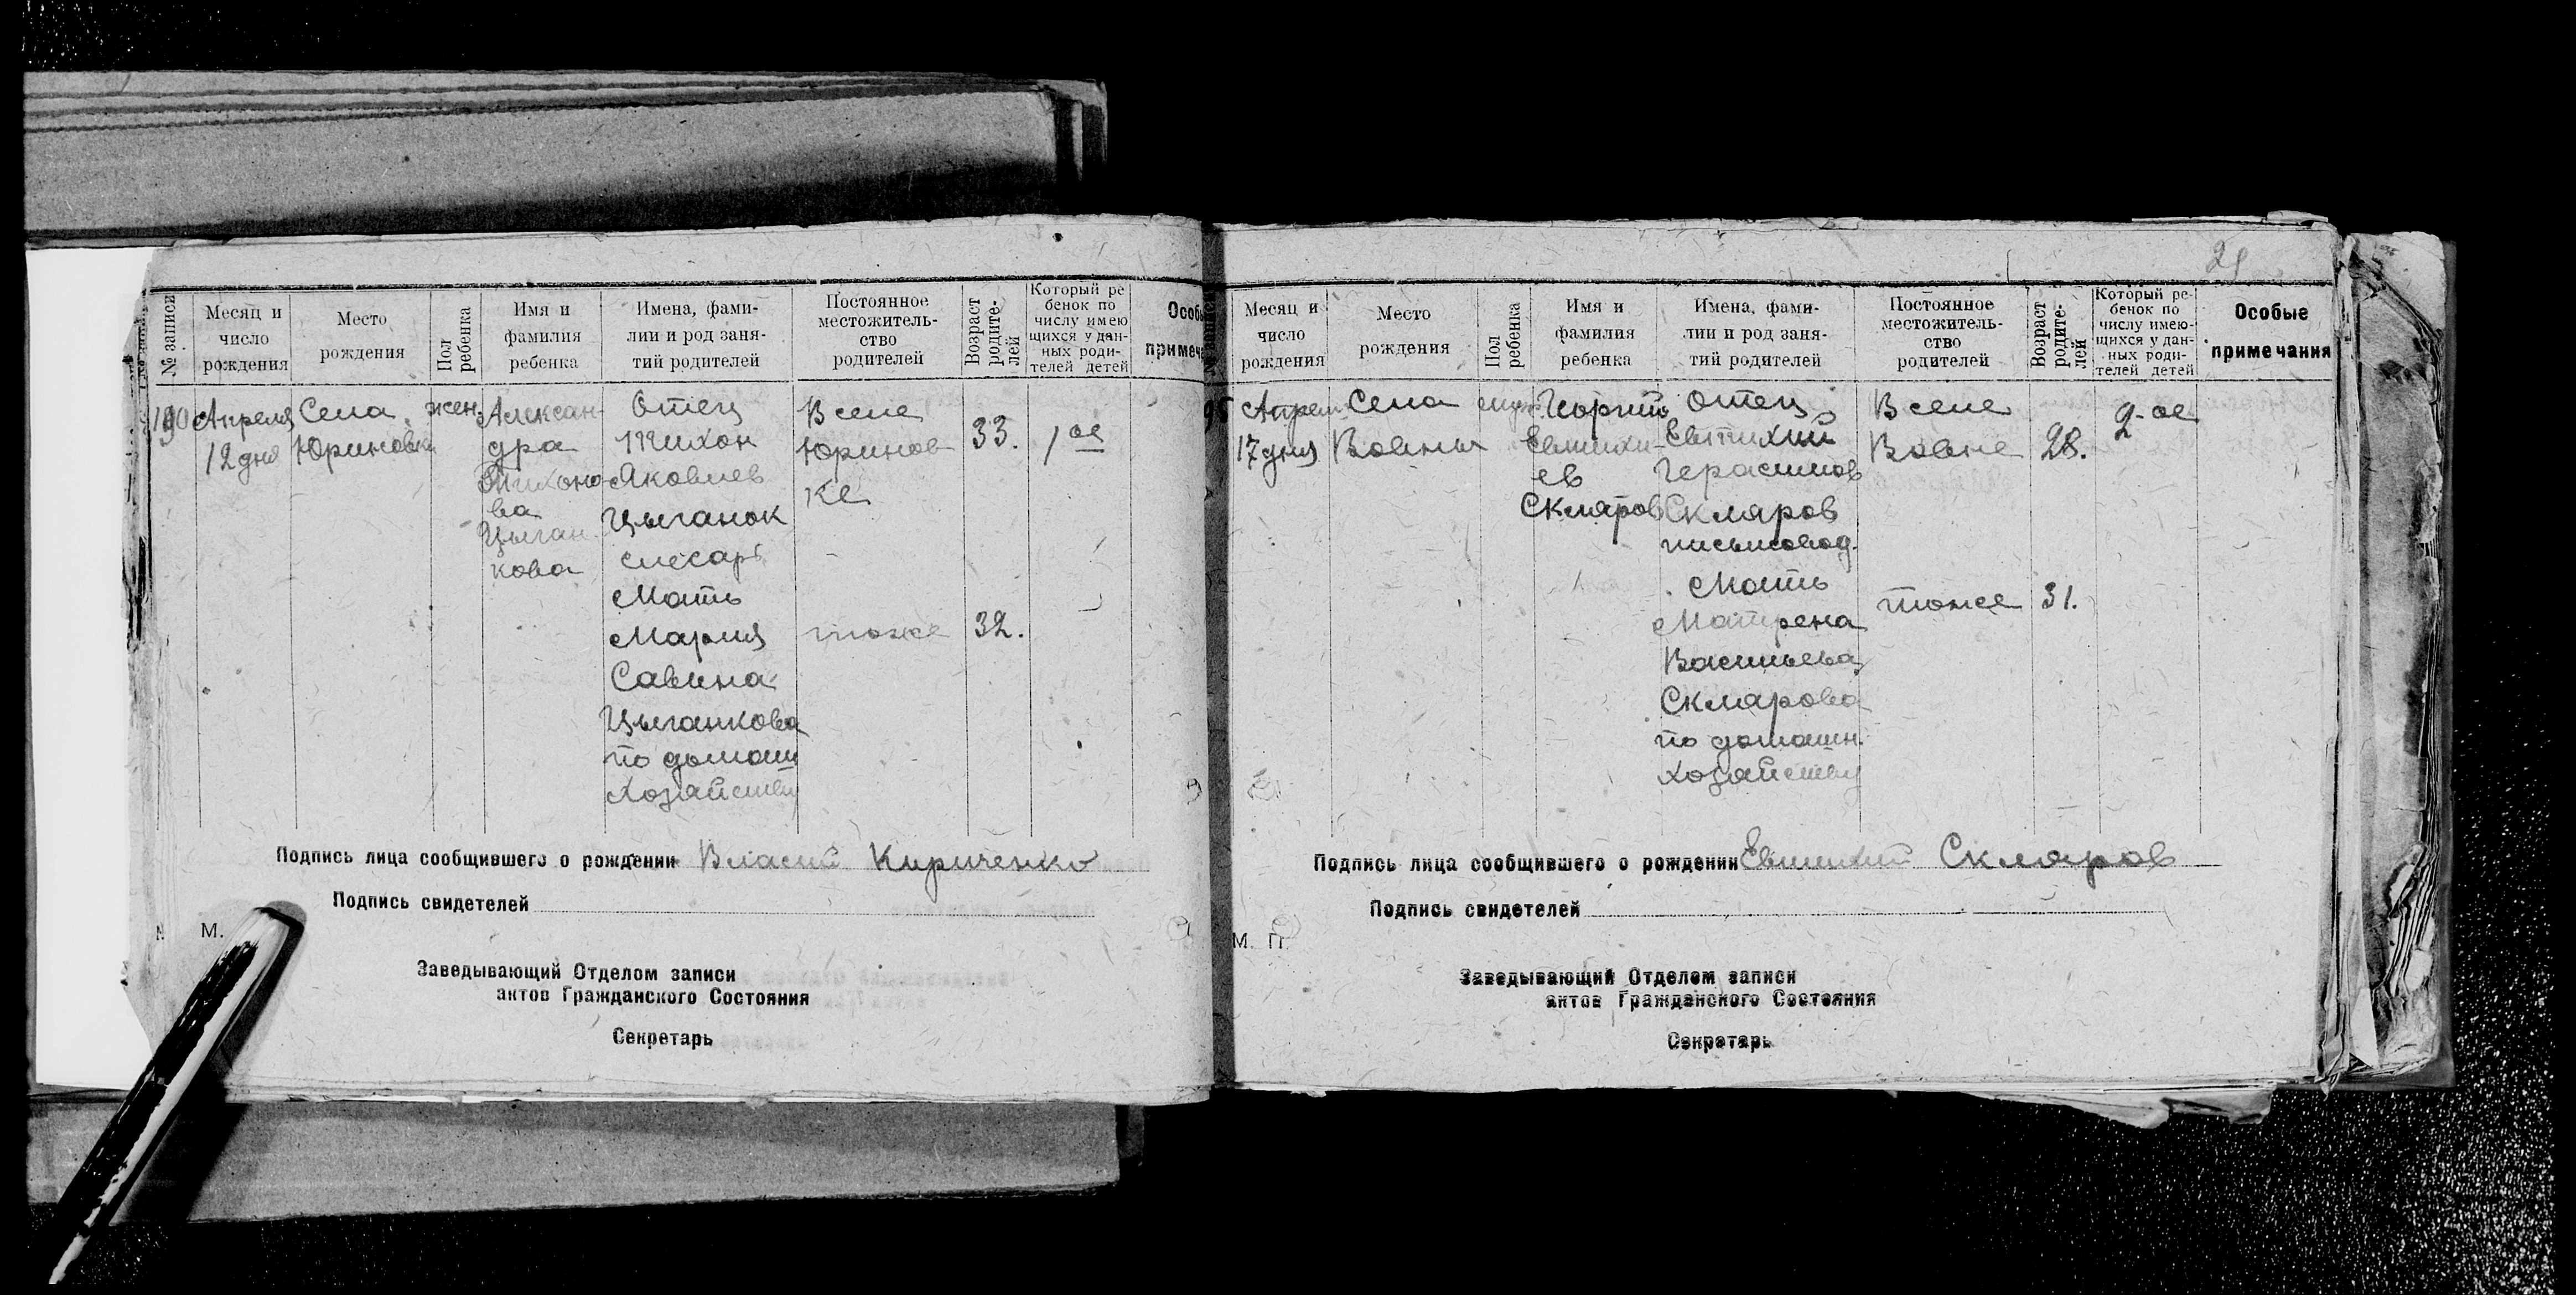 21
№ записи
Месяц и
число
рождения
Место
рождения
Пол
ребенка
Имя и
фамилия
ребенка
Имена, фами-
лии и род заня-
тий родителей
Постоянное
местожитель-
ство
родителей
Возраст
родите-
лей
Который ре
бенок по
числу имею
щихся у дан-
ных роди-
телей детей
Особы
примеча
Апреля
12 дня
Села
Юриновки
жен.
Алексан-
дра
Тихоно-
ва
Цыган-
кова
Отец
Тихон
Яковлев
Цыганок
слесарь
Мать
Мария
Савина
Цыганкова
по домаш
хозяйству
В селе
Юринов
ке
тоже
33.
32.
1 ое
Подпись лица сообщившего о рождении Власий Кириченко
Подпись свидетелей
М.
Заведывающий Отделом записи
актов Гражданского Состояния
Секретарь
Месяц и
число
рождения
Место
рождения
Пол
ребенка
Имя и
фамилия
ребенка
Имена, фами-
лии и род заня-
тий родителей
Постоянное
местожитель-
ство
родителей
Возраст
родите-
лей
Который ре-
бенок по
числу имею-
щихся у дан-
ных роди-
телей детей
Особые
примечания
Апреля
17 дня
Села
Муж.
Евтихи-
ев
Скляров
Отец
Евтихий
Герасимов
Скляров
письмовод.
Мать
Матрена
Васильева
Склярова
по домашн.
хозяйству
В селе
тоже
28.
31.
2-ое
Подпись лица сообщившего о рождении Евтихий Скляров
Подпись свидетелей
М. П.
Заведывающий Отделом записи
актов Гражданского Состояния
Секретарь